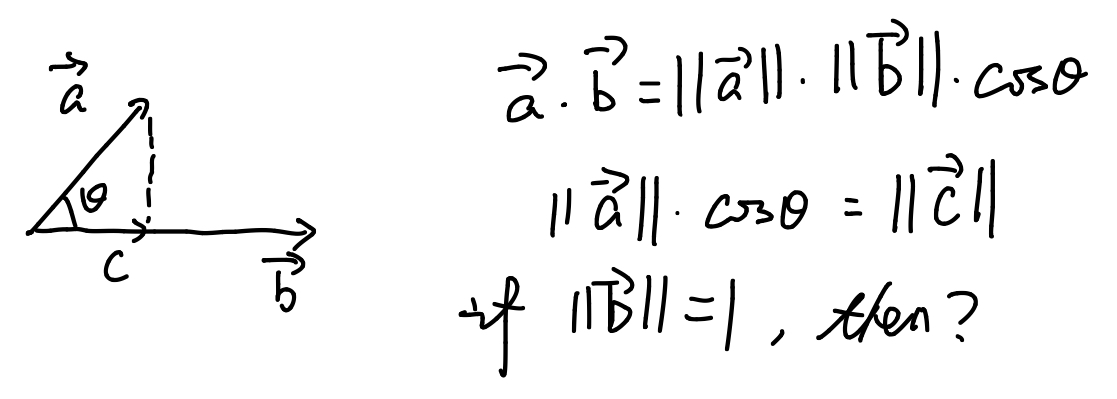 a⃗
θ
c
b⃗
a⃗ · b⃗ = ||a⃗|| · ||b⃗|| · cosθ
||a⃗|| · cosθ = ||c⃗||
if ||b⃗|| = 1, then?